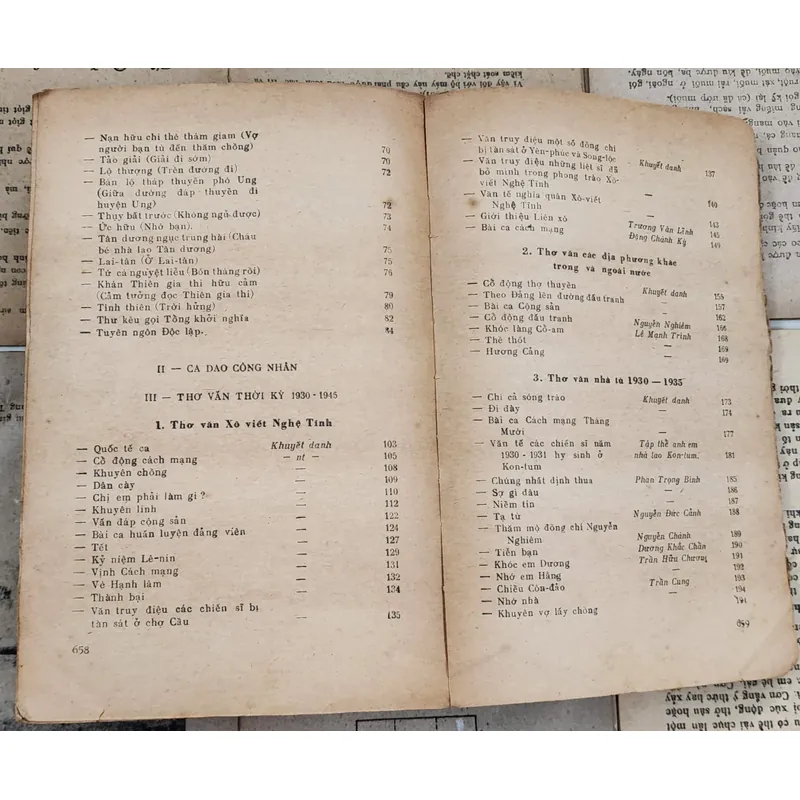 — Nạn hữu chi thê thám giam (Vợ
người bạn tù đến thăm chồng) 70
— Tảo giải (Giải đi sớm) 70
— Lộ thượng (Trên đường đi) 72
— Bán lộ tháp thuyền phó Ung
(Giữa đường đáp thuyền đi
huyện Ung) 72
— Thụy bất trước (Không ngủ được) 73
— Ức hữu (Nhớ bạn). 74
— Tân dương ngục trung hài (Cháu
bé nhà lao Tân dương) 75
— Lai-tân (Ở Lai-tân) 75
— Tứ cá nguyệt liễu (Bốn tháng rồi) 76
— Khán Thiên gia thi hữu cảm
(Cảm tưởng đọc Thiên gia thi) 79
— Tình thiên (Trời hửng) 80
— Thư kêu gọi Tổng khởi nghĩa 82
— Tuyên ngôn Độc lập. 84
II — CA DAO CÔNG NHÂN
III — THƠ VĂN THỜI KỲ 1930-1945
1. Thơ văn Xô viết Nghệ Tĩnh
— Quốc tế ca Khuyết danh 103
— Cổ động cách mạng — nt — 105
— Khuyên chồng — 108
— Dân cày — 109
— Chị em phải làm gì? — 110
— Khuyên lính — 112
— Vấn đáp cộng sản — 122
— Bài ca huấn luyện đảng viên — 124
— Tết — 127
— Kỷ niệm Lê-nin — 129
— Vịnh Cách mạng — 131
— Vè Hạnh lâm — 132
— Thành bại — 134
— Văn truy điệu các chiến sĩ bị
tàn sát ở chợ Cầu — 135
658
— Văn truy điệu một số đồng chí
bị tàn sát ở Yên-phúc và Song-lộc Khuyết danh
— Văn truy điệu những liệt sĩ đã 137
bỏ mình trong phong trào Xô-
viết Nghệ Tĩnh —
— Văn tế nghĩa quân Xô-viết
Nghệ Tĩnh — 140
— Giới thiệu Liên xô Trương Văn Lĩnh 143
— Bài ca cách mạng Đặng Chánh Kỷ 145
149
2. Thơ văn các địa phương khác
trong và ngoài nước
— Cổ động thợ thuyền Khuyết danh
— Theo Đảng lên đường đấu tranh — 155
— Bài ca Cộng sản — 157
— Cổ động đấu tranh — 162
— Khóc làng Cổ-am Nguyễn Nghiêm 166
— Thề thốt Lê Mạnh Trinh 168
— Hương Cảng — 169
3. Thơ văn nhà tù 1930 — 1935
— Chi cả sóng trào Khuyết danh 173
— Đi đày — 174
— Bài ca Cách mạng Tháng
Mười — 177
— Văn tế các chiến sĩ năm Tập thể anh em
1930 - 1931 hy sinh ở nhà lao Kon-tum. 181
Kon-tum
— Chúng nhất định thua Phan Trọng Bình 185
— Sợ gì đâu — 186
— Niềm tin — 187
— Tạ từ Nguyễn Đức Cảnh 188
— Thăm mộ đồng chí Nguyễn
Nghiêm Nguyễn Chánh 189
— Tiễn bạn Dương Khắc Chấn 190
— Khóc em Dương Trần Hữu Chương 191
— Nhớ em Hằng — 192
— Chiều Côn-đảo Trần Cung 193
— Nhớ nhà — 194
— Khuyên vợ lấy chồng 194
659